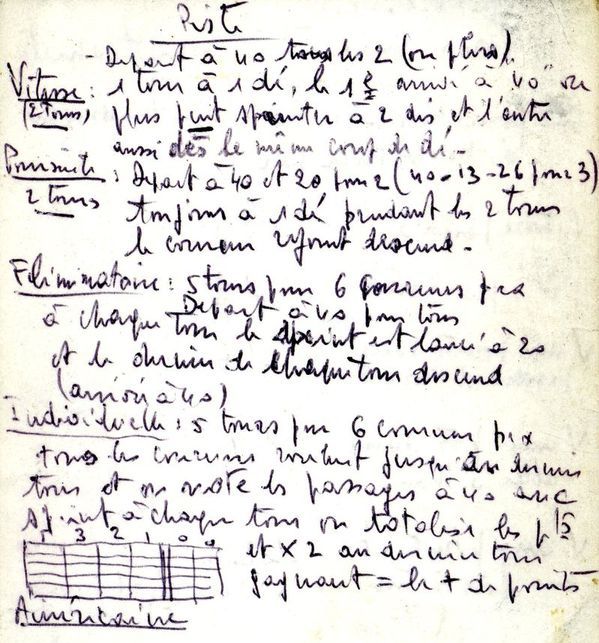 Piste
- Depart à 40 tous les 2 (ou plus).
Vitesse : 1 tour à 1 dé, le 1er arrivé à 40 ou
(2 tours) plus peut sprinter à 2 dés et l'autre
aussi dès le même coup de dé -
Poursuite : Depart à 40 et 20 pour 2 (40-13-26 pour 3)
2 tours toujours à 1 dé pendant les 2 tours
le coureur rejoint descend -
Eliminatoire : 5 tours pour 6 coureurs p ex
Depart à 40 pour tous
à chaque tour le sprint est lancé à 20
et le dernier de chaque tour descend
(arrivé à 40)
Individuelle : 5 tours pour 6 coureurs p ex
tous les coureurs roulent jusqu'au dernier
tour et on note les passages à 40 avec
sprint à chaque tour on totalise les pts
3 2 1 0 0
et x 2 au dernier tour
gagnant = le + de points
Américaine